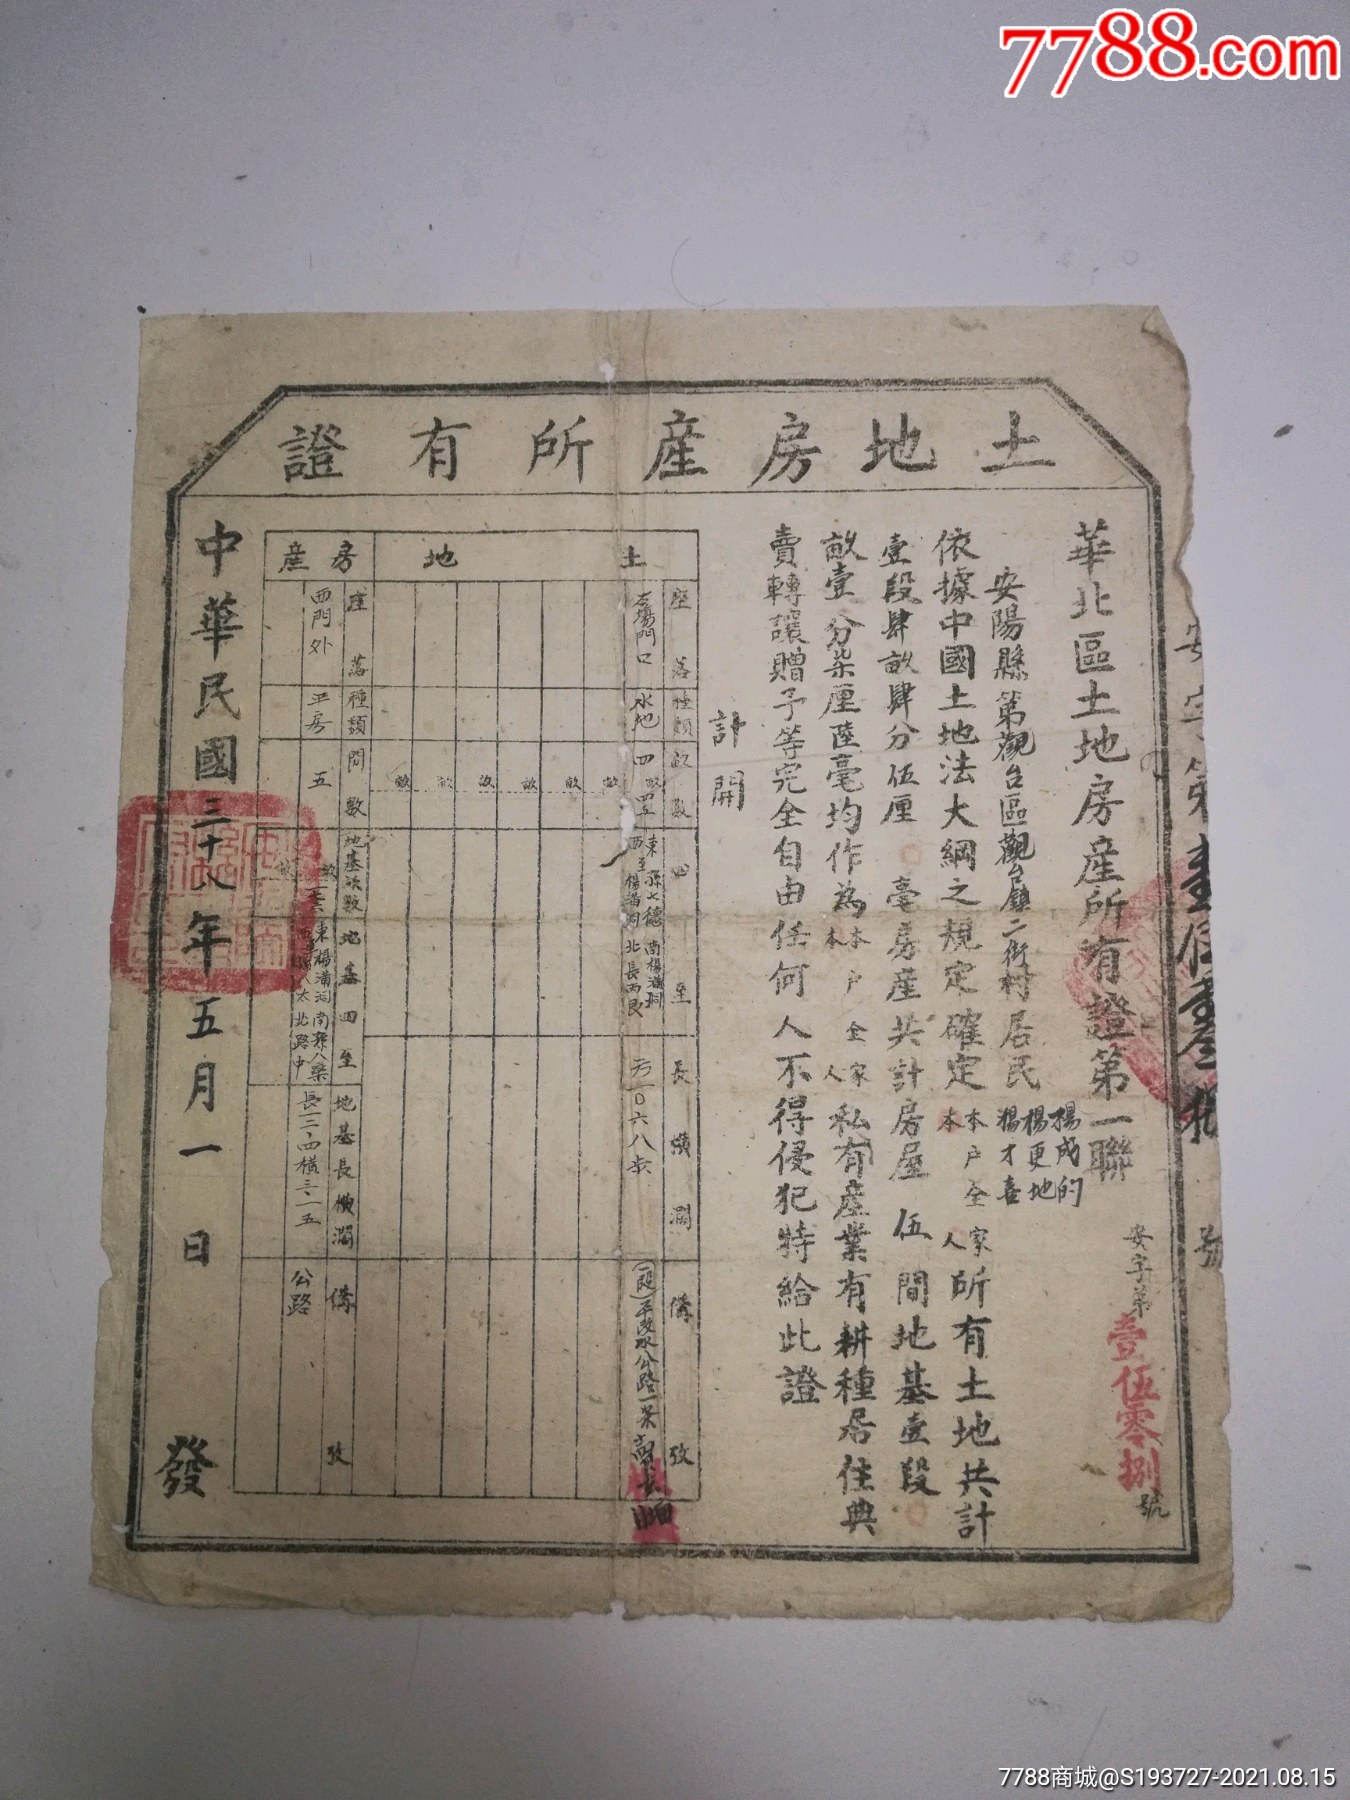 7788.com
土地房產所有證
華北區土地房產所有證第一聯
安字第壹伍零捌號
安陽縣第觀台區觀台鎮二街村居民楊成的
楊更地
楊才喜
依據中國土地法大綱之規定確定本戶全家
本人
所有土地共計
壹段肆畝肆分伍厘 毫房產共計房屋伍間地基壹段
畝壹分柒厘陸毫均作為本戶全家
本人
私有產業有耕種居住典
賣轉讓贈予等完全自由任何人不得侵犯特給此證
計開
土地
座落
種類
畝數
四至
長橫濶
備攷
門口
水地
四畝四五
東孫七德
南楊满祠
西至楊满祠
公路一条
畝
畝
畝
畝
畝
畝
房產
座落
種類
間數
地基畝數
地基四至
地基長橫濶
備攷
西門外
平房
五
東楊满祠
北路中
長一二·四橫三·一五
公路
中華民國三十八年五月一日
發
號
7788商城@S193727-2021.08.15